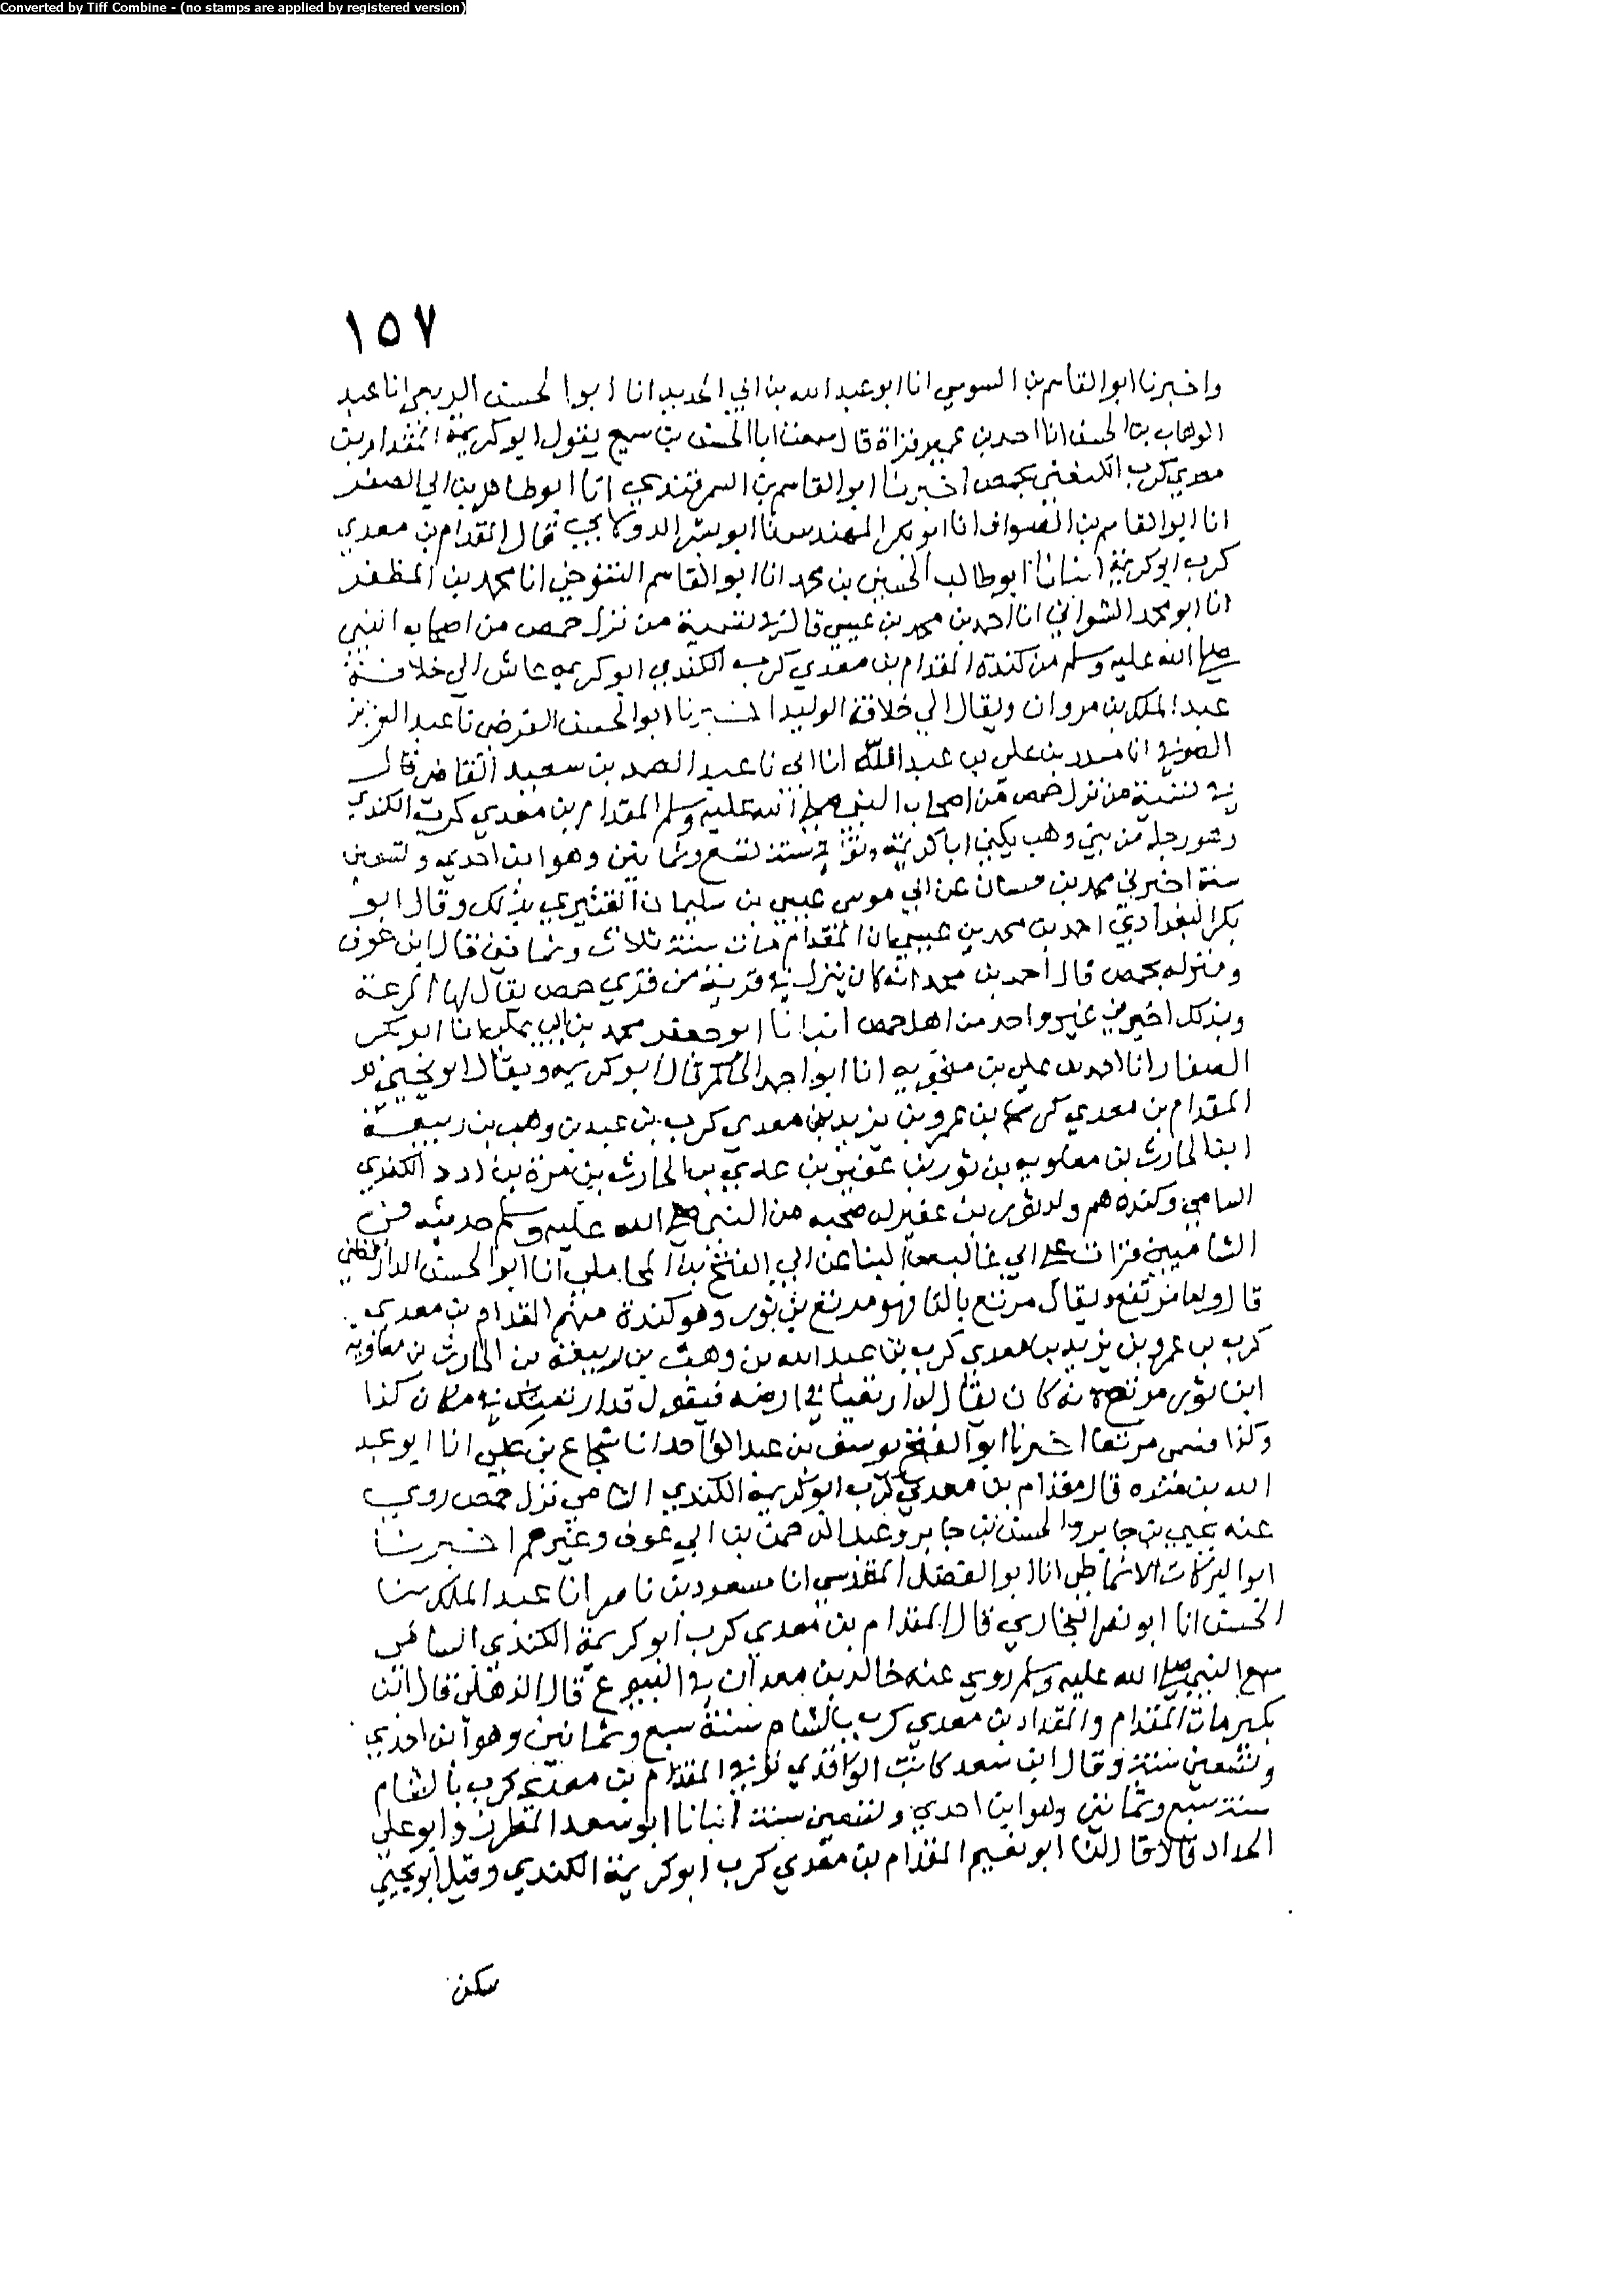 Converted by Tiff Combine - (no stamps are applied by registered version)
١٥٧
واخبرنا ابو القاسم بن السوسي انا ابو عبد الله بن ابي الحديد انا ابو الحسن الربعي انا عبد
الوهاب بن الحسن انا احمد بن عمير قراة قال سمعت ابا الحسن بن سميع يقول ابو كريمة المقدام بن
معدي كرب الكندي بحمص اخبرنا ابو القاسم بن السمرقندي انا ابو طاهر بن ابي الصقر
انا ابو القاسم بن الصواف انا ابو بكر المهندس نا ابو بشر الدولابي قال المقدام بن معدي
كرب ابو كريمة انبانا ابو طالب الحسين بن محمد انا ابو القاسم التنوخي انا محمد بن المظفر
انا ابو محمد الشواني انا احمد بن محمد بن عيسى قال في تسمية من نزل حمص من اصحاب النبي
صلى الله عليه وسلم من كندة المقدام بن معدي كرب الكندي ابو كريمه عاش الى خلافة
عبد الملك بن مروان ويقال الي خلافة الوليد اخبرنا ابو الحسن الفرضي نا عبد العزيز
الصوفي انا مسدد بن علي بن عبد الله انا ابي نا عبد الصمد بن سعيد القاضي قال
في تسمية من نزل حمص من اصحاب النبي صلى الله عليه وسلم المقدام بن معدي كرب الكندي
وهو رجل من بني وهب يكنى ابا كريمة وتوفي سنة تسع وثمانين وهو ابن احدي وتسعين
سنة اخبرني محمد بن عن ابي موسى عيسى بن سليمان القشيري بذلك وقال ابو
بكر البغدادي احمد بن محمد بن عيسى ان المقدام مات سنة ثلاث وثمانين قال ابن عوف
ومنزله بحمص قال احمد بن محمد انه كان ينزل في قرية من قري حمص يقال لها
وبذلك اخبرني غير واحد من اهل حمص انبانا ابو جعفر محمد بن ابي علي انا ابو بكر
الصفار انا احمد بن علي بن منجويه انا ابو احمد الحاكم قال ابو كريمه ويقال ابو يحيى
المقدام بن معدي كرب بن عمرو بن يزيد بن معدي كرب بن عبد بن وهب بن ربيعة
ابن الحارث بن معاويه بن ثور بن عفير بن عدي بن الحارث بن مرة بن ادد الكندي
الشامي وكنده هم ولد ثور بن عفير له صحبه من النبي صلى الله عليه وسلم حديثه في
الشاميين قرات على ابي غالب بن البنا عن ابي الفتح بن المحاملي انا ابو الحسن الدارقطني
قال واما مرتفع ويقال مرتع بالتا فهو مرتع بن ثور وهو كندة منهم المقدام بن معدي
كرب بن عمرو بن يزيد بن معدي كرب بن عبد الله بن وهب بن ربيعة بن الحارث بن معاوية
ابن ثور مرتع لانه كان يقال له ارتعنا في ارضه فيقول قد ارتعتك في مكان كذا
وكذا فسمي مرتعا اخبرنا ابو الفتح يوسف بن عبد الواحد انا شجاع بن علي انا ابو عبد
الله بن منده قال مقدام بن معدي كرب ابو كريمة الكندي الشامي نزل حمص روي
عنه يحيى بن جابر والحسن بن جابر وعبد الرحمن بن ابي عوف وغيرهم اخبرنا
ابو البركات الانماطي انا ابو الفضل المقدسي انا مسعود بن ناصر انا عبد الملك بن
الحسن انا ابو نصر البخاري قال المقدام بن معدي كرب ابو كريمة الكندي الشامي
سمع النبي صلى الله عليه وسلم روي عنه خالد بن معدان في البيوع قال الذهلي قال ابن
بكير مات المقدام والمقداد بن معدي كرب بالشام سنة سبع وثمانين وهو ابن احدي
وتسعين سنة وقال ابن سعد كاتب الواقدي توفي المقدام بن معدي كرب بالشام
سنة سبع وثمانين وهو ابن احدي وتسعين سنة انبانا ابو سعد المطرز وابو علي
الحداد قالا قال لنا ابو نعيم المقدام بن معدي كرب ابو كريمة الكندي وقيل ابو يحيى
سكن